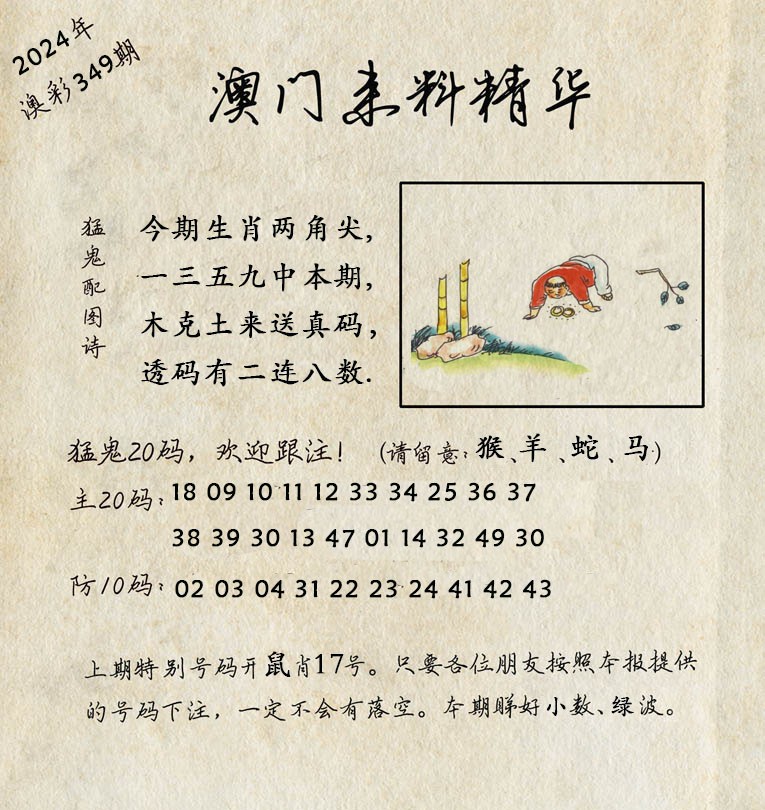 2024年
澳彩349期
澳门来料精华
猛鬼配图诗
今期生肖两角尖,
一三五九中本期,
木克土来送真码,
透码有二连八数.
猛鬼20码，欢迎跟注！ (请留意:猴、羊、蛇、马)
主20码: 18 09 10 11 12 33 34 25 36 37
38 39 30 13 47 01 14 32 49 30
防10码: 02 03 04 31 22 23 24 41 42 43
上期特别号码开鼠肖17号。只要各位朋友按照本报提供
的号码下注，一定不会有落空。本期睇好小数、绿波。